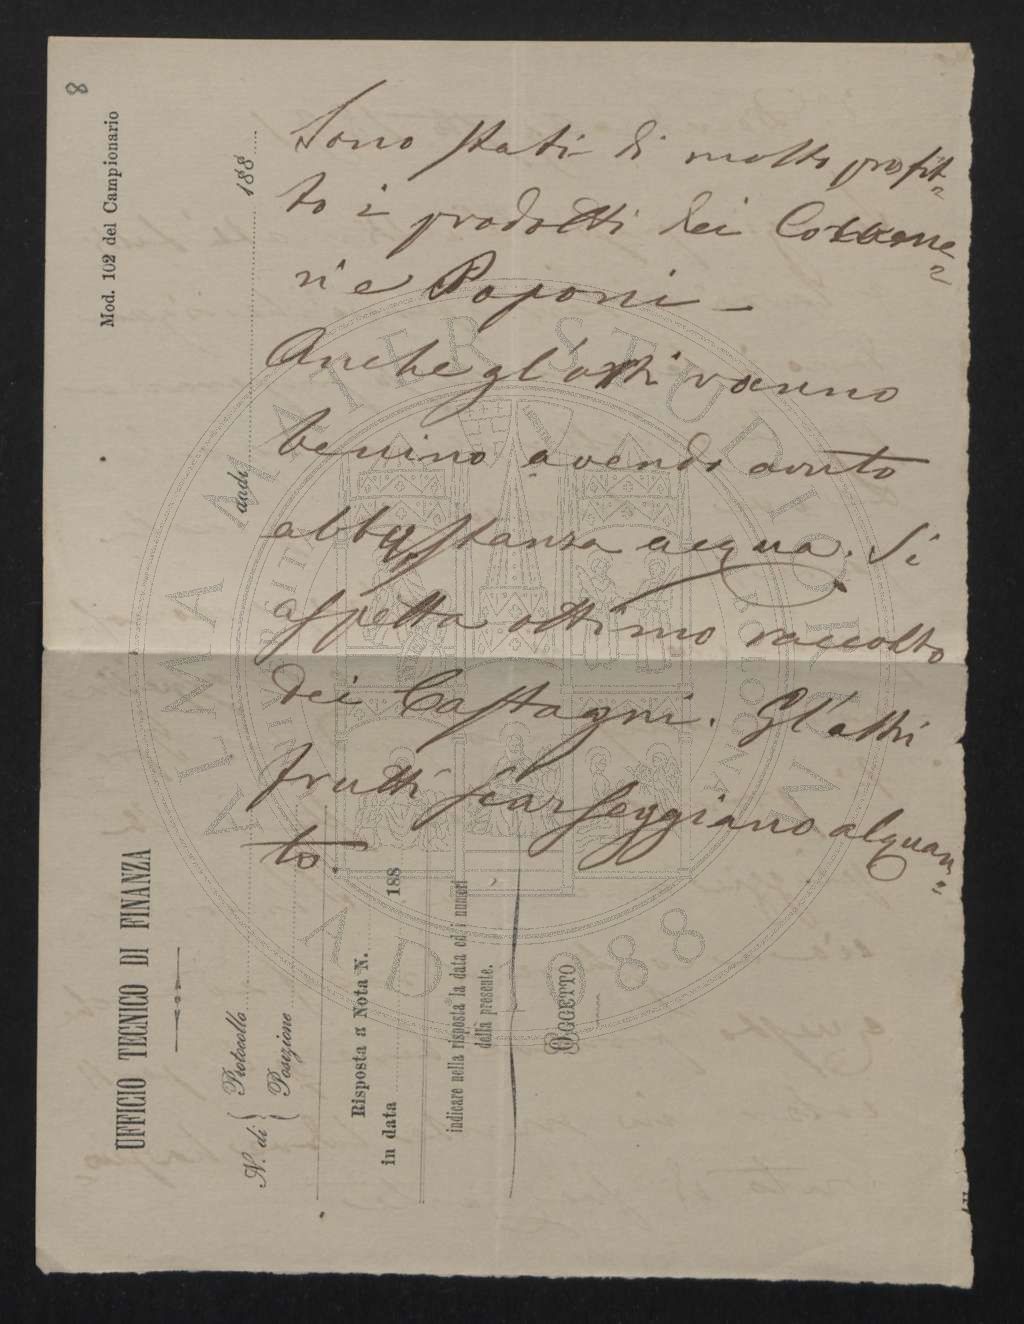 8
Mod. 102 del Campionario
addì 188
Sono stati di molto profit=
to i prodotti dei
ri e Poponi –
Anche gl'orti vanno
benino avendo avuto
abbastanza acqua. Si
aspetta ottimo raccolto
dei Castagni. Gl'altri
frutti scarseggiano alquan=
to.
UFFICIO TECNICO DI FINANZA
N. di { Protocollo
{ Posizione
Risposta a Nota N.
in data 188
indicare nella risposta la data ed i numeri
della presente.
OGGETTO
ALMA MATER STUDIORUM
A.D. 1088